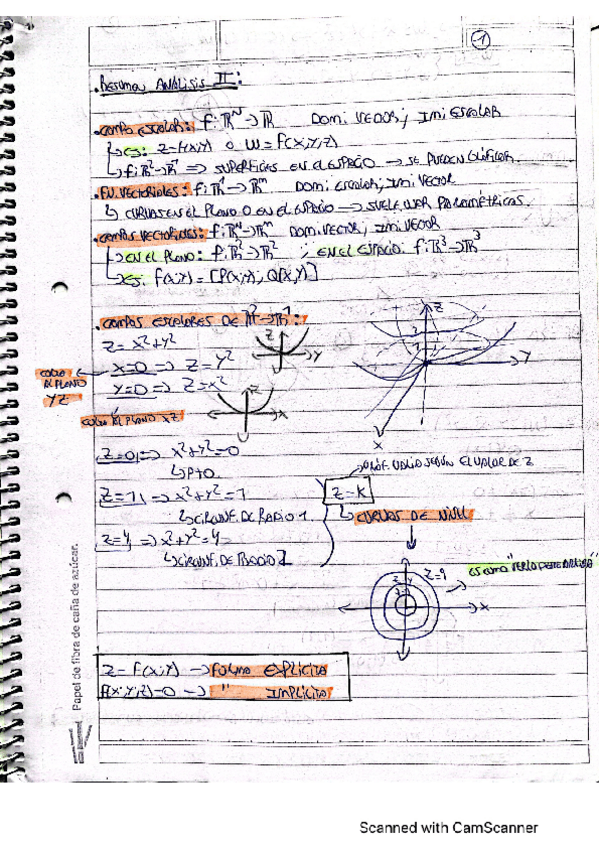 1
• RESUMEN ANÁLISIS II:
• CAMPO ESCALAR: f: ℝᴺ → ℝ DOM: VECTOR; IM: ESCALAR
↳ EJ: Z=f(x,y) o W=f(x,y,z)
↳ f: ℝ² → ℝ¹ => SUPERFICIES EN EL ESPACIO → SE PUEDEN GRAFICAR.
• FN. VECTORIALES: f: ℝ¹ → ℝᵐ DOM: ESCALAR; IM: VECTOR
↳ CURVAS EN EL PLANO O EN EL ESPACIO → SUELE USAR PARAMÉTRICAS.
• CAMPOS VECTORIALES: f: ℝᴺ → ℝᵐ DOM: VECTOR, IM: VECTOR
↳ EN EL PLANO: f: ℝ² → ℝ² ; EN EL ESPACIO: f: ℝ³ → ℝ³
↳ EJ: f(x,y) = [P(x,y); Q(x,y)]
• CAMPOS ESCALARES DE ℝ² → ℝ¹:
Z = x² + y²
x=0 => Z = y²
CORTO AL PLANO YZ
y=0 => Z = x²
CORTO AL PLANO XZ
Z
Y
Z
X
Z
Y
X
Z=0 => x²+y²=0
↳ PTO
Z=1 => x²+y²=1
↳ CIRCUNF. DE RADIO 1
Z=4 => x²+y²=4
↳ CIRCUNF. DE RADIO 2
Z=K
↳ CURVAS DE NIVEL
Z=9
X
Z = f(x,y) → FORMA EXPLÍCITA
f(x,y,z)=0 → " IMPLÍCITA
Papel de fibra de caña de azúcar.
Scanned with CamScanner